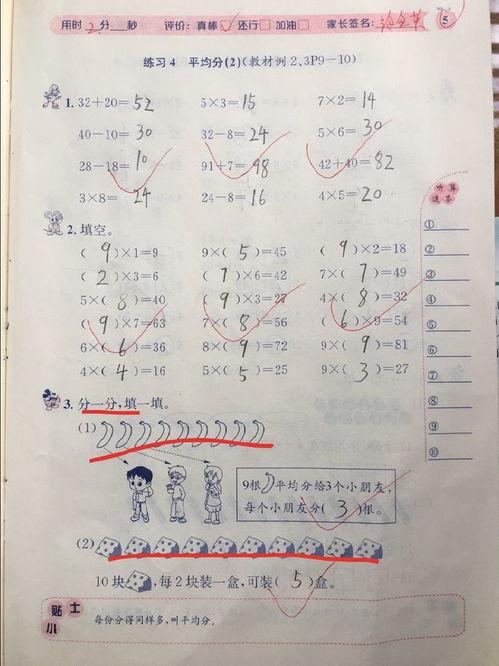 用时2分 秒 评价:真棒✓ 还行□ 加油□ 家长签名: 5
练习4 平均分(2)(教材例2、3P9-10)
1. 32+20=52 5×3=15 7×2=14
40-10=30 32-8=24 5×6=30
28-18=10 91+7=98 42+40=82
3×8=24 24-8=16 4×5=20
听算
速答
2. 填空。
(9)×1=9 9×(5)=45 (9)×2=18
(2)×3=6 (7)×6=42 7×(7)=49
5×(8)=40 (9)×3=27 4×(8)=32
(9)×7=63 7×(8)=56 (6)×9=54
6×(6)=36 8×(9)=72 9×(9)=81
4×(4)=16 5×(5)=25 9×(3)=27
①
②
③
④
⑤
⑥
⑦
⑧
⑨
⑩
3. 分一分,填一填。
(1)
9根 平均分给3个小朋友,
每个小朋友分(3)根。
(2)
10块 ,每2块装一盒,可装(5)盒。
小贴士
每份分得同样多,叫平均分。